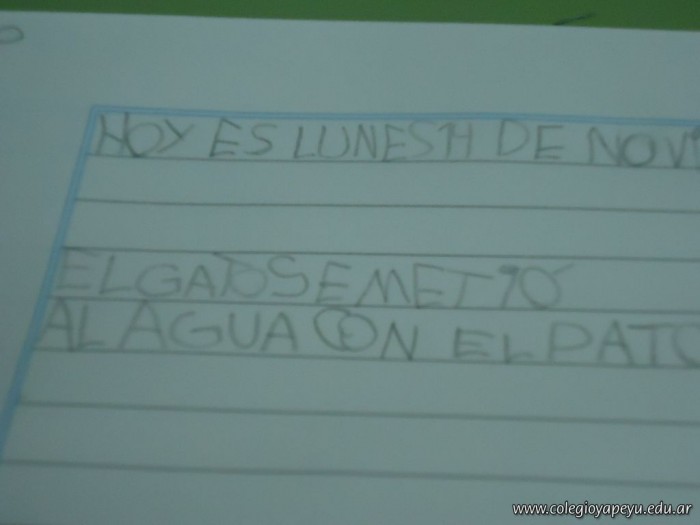 HOY ES LUNES 14 DE NOVI
EL GATO SE METIÓ
AL AGUA CON EL PATO
www.colegioyapeyu.edu.ar